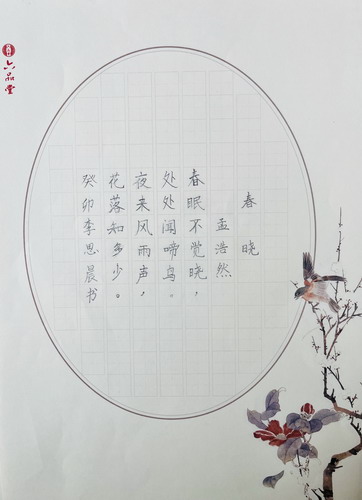 六品堂
春晓
孟浩然
春眠不觉晓，
处处闻啼鸟。
夜来风雨声，
花落知多少。
癸卯李思晨书